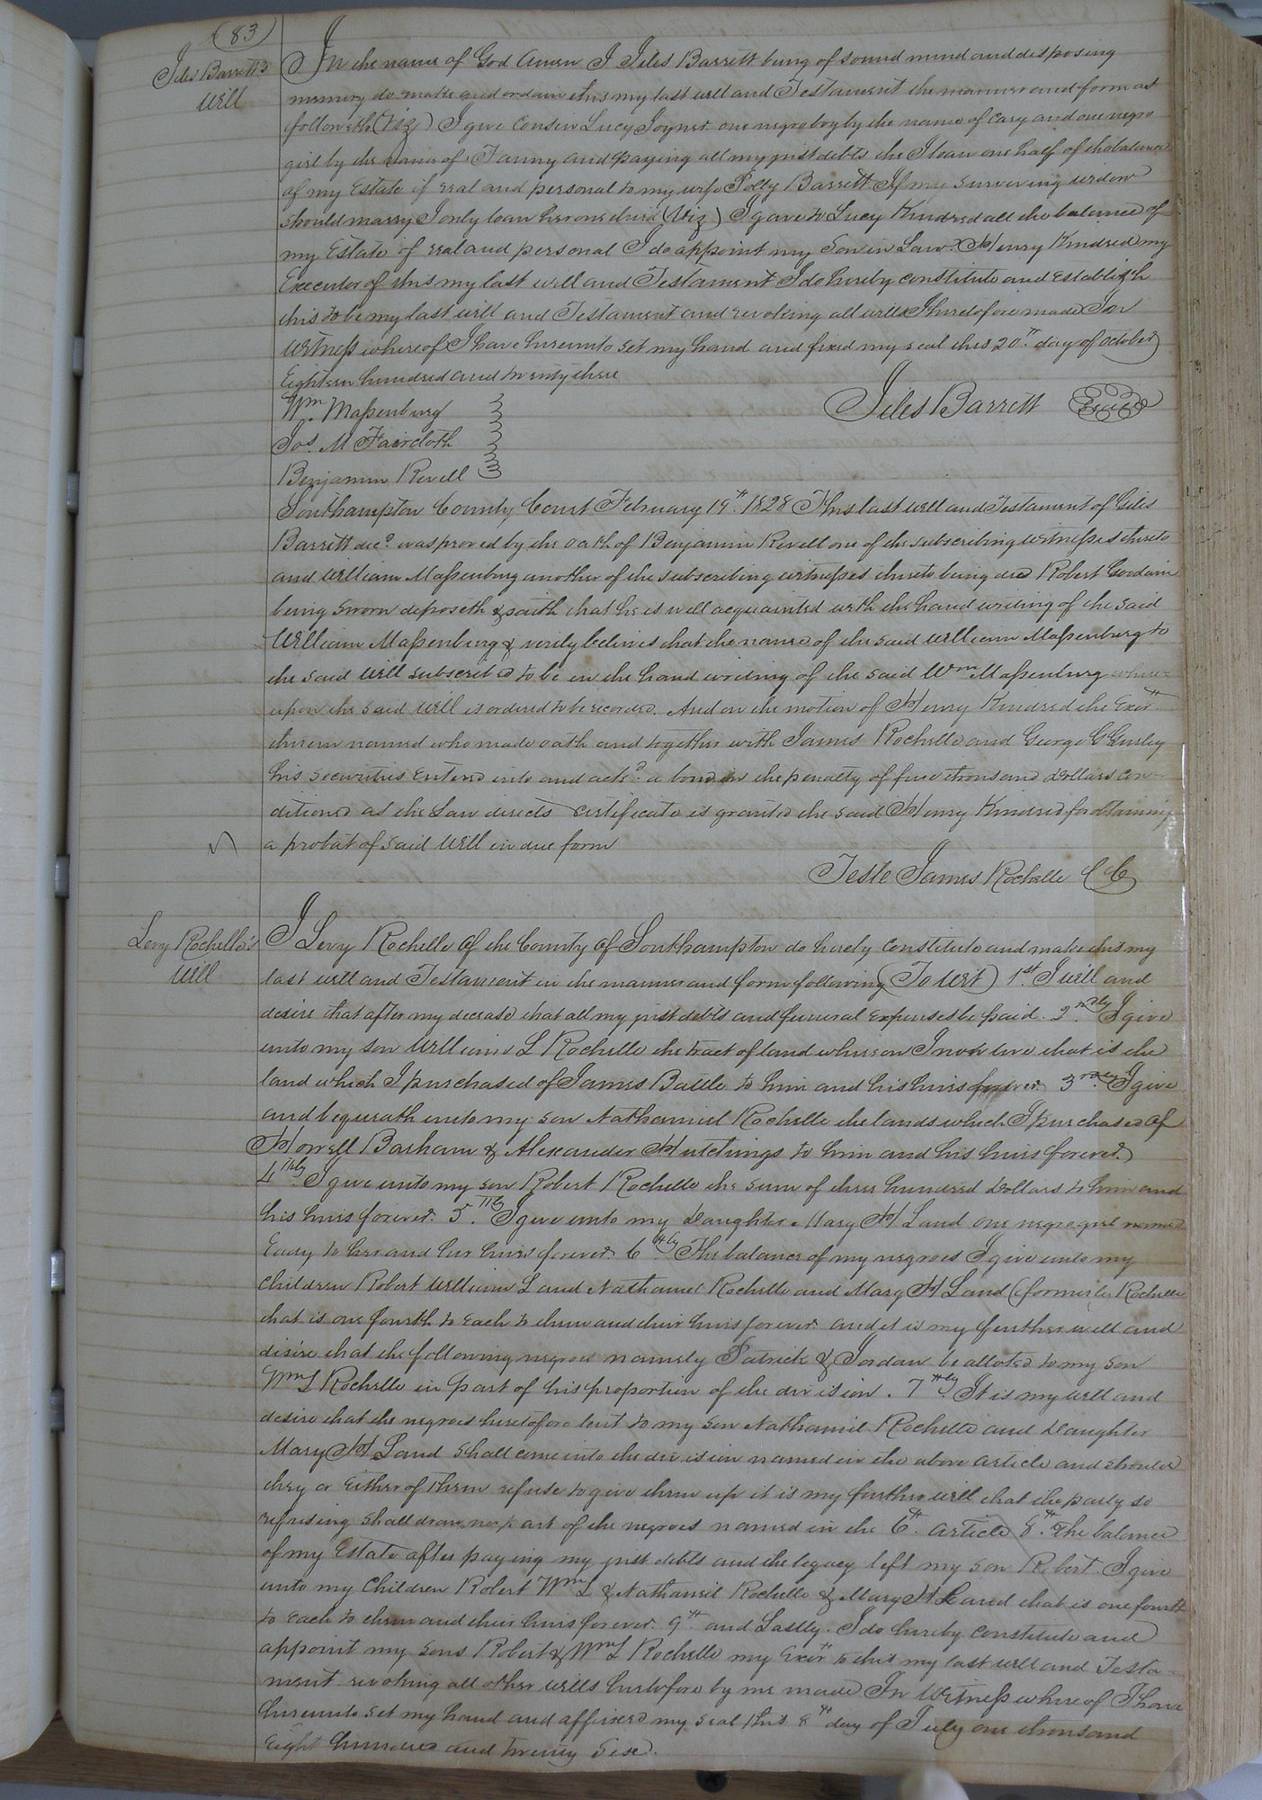 (83)
Jiles Barrett's
Will
In the name of God Amen I Jiles Barrett being of sound mind and disposing
memory do make and ordain this my last will and Testament the manner and form as
followeth (Viz) I give Consin Lucy Joyner one negro boy by the name of Cary and one negro
girl by the name of Fanny and paying all my just debts the I loan one half of the balance
of my Estate if real and personal to my wife Polly Barrett If my surviving widow
should marry I only loan her one third (Viz) I gave to Lucy Kindred all the balance of
my Estate of real and personal I do appoint my Son in Law Henry Kindred my
Executor of this my last will and Testament I do hereby constitute and establish
this to be my last will and Testament and revoking all wills theretofore made In
Witness whereof I have hereunto set my hand and fixed my seal this 20th day of October
Eighteen hundred and twenty three
Wm Massenburg
Jiles Barrett
Jos. M Faircloth
Benjamin Revell
Southampton County Court February 19th 1828 This last will and Testament of Giles
Barrett decd was proved by the oath of Benjamin Revell one of the subscribing witnesses thereto
and William Massenburg another of the subscribing witnesses thereto being dead Robert Goodwin
being sworn deposeth & saith that he is well acquainted with the hand writing of the said
William Massenburg & verily believes that the name of the said William Massenburg to
the said will subscribed to be in the hand writing of the said Wm Massenburg where
upon the said will is ordered to be recorded. And on the motion of Henry Kindred the Exor
therein named who made oath and together with James Rochelle and George C Gurley
his securities entered into and ackd a bond in the penalty of five thousand dollars con
ditioned as the Law directs certificate is granted the said Henry Kindred for obtaining
a probat of said will in due form
Teste James Rochelle C C
Levy Rochelle's
Will
I Levy Rochelle of the County of Southampton do hereby constitute and make this my
last will and Testament in the manner and form following (To Wit) 1st I will and
desire that after my decease that all my just debts and funeral expenses be paid. 2ndly I give
unto my son William L Rochelle the tract of land whereon I now live that is the
land which I purchased of James Battle to him and his heirs forever 3rdly I give
and bequeath unto my son Nathaniel Rochelle the lands which I purchased of
Howell Barham & Alexander Hutchings to him and his heirs forever
4thly I give unto my son Robert Rochelle the sum of three hundred dollars to him and
his heirs forever. 5thly I give unto my daughter Mary H Land one negro girl named
Easy to her and her heirs forever 6thly The balance of my negroes I give unto my
children Robert William L and Nathaniel Rochelle and Mary H Land (formerly Rochelle
that is one fourth to each to them and their heirs forever and it is my further will and
desire that the following negroes namely Patrick & Jordan be alloted to my son
Wm L Rochelle in part of his proportion of the division. 7thly It is my will and
desire that the negroes heretofore lent to my son Nathaniel Rochelle and daughter
Mary H Land shall come into the division named in the above article and should
they or either of them refuse to give them up it is my further will that the party so
refusing shall draw no part of the negroes named in the 6th article 8th The balance
of my Estate after paying my just debts and the legacy left my son Robert I give
unto my children Robert Wm L & Nathaniel Rochelle & Mary H Land that is one fourth
to each to them and their heirs forever. 9th and Lastly. I do hereby constitute and
appoint my sons Robert & Wm L Rochelle my Exors to this my last will and Testa
ment revoking all other wills heretofore by me made In Witness where of I have
hereunto set my hand and affixed my seal this 8th day of July one thousand
Eight hundred and twenty six.